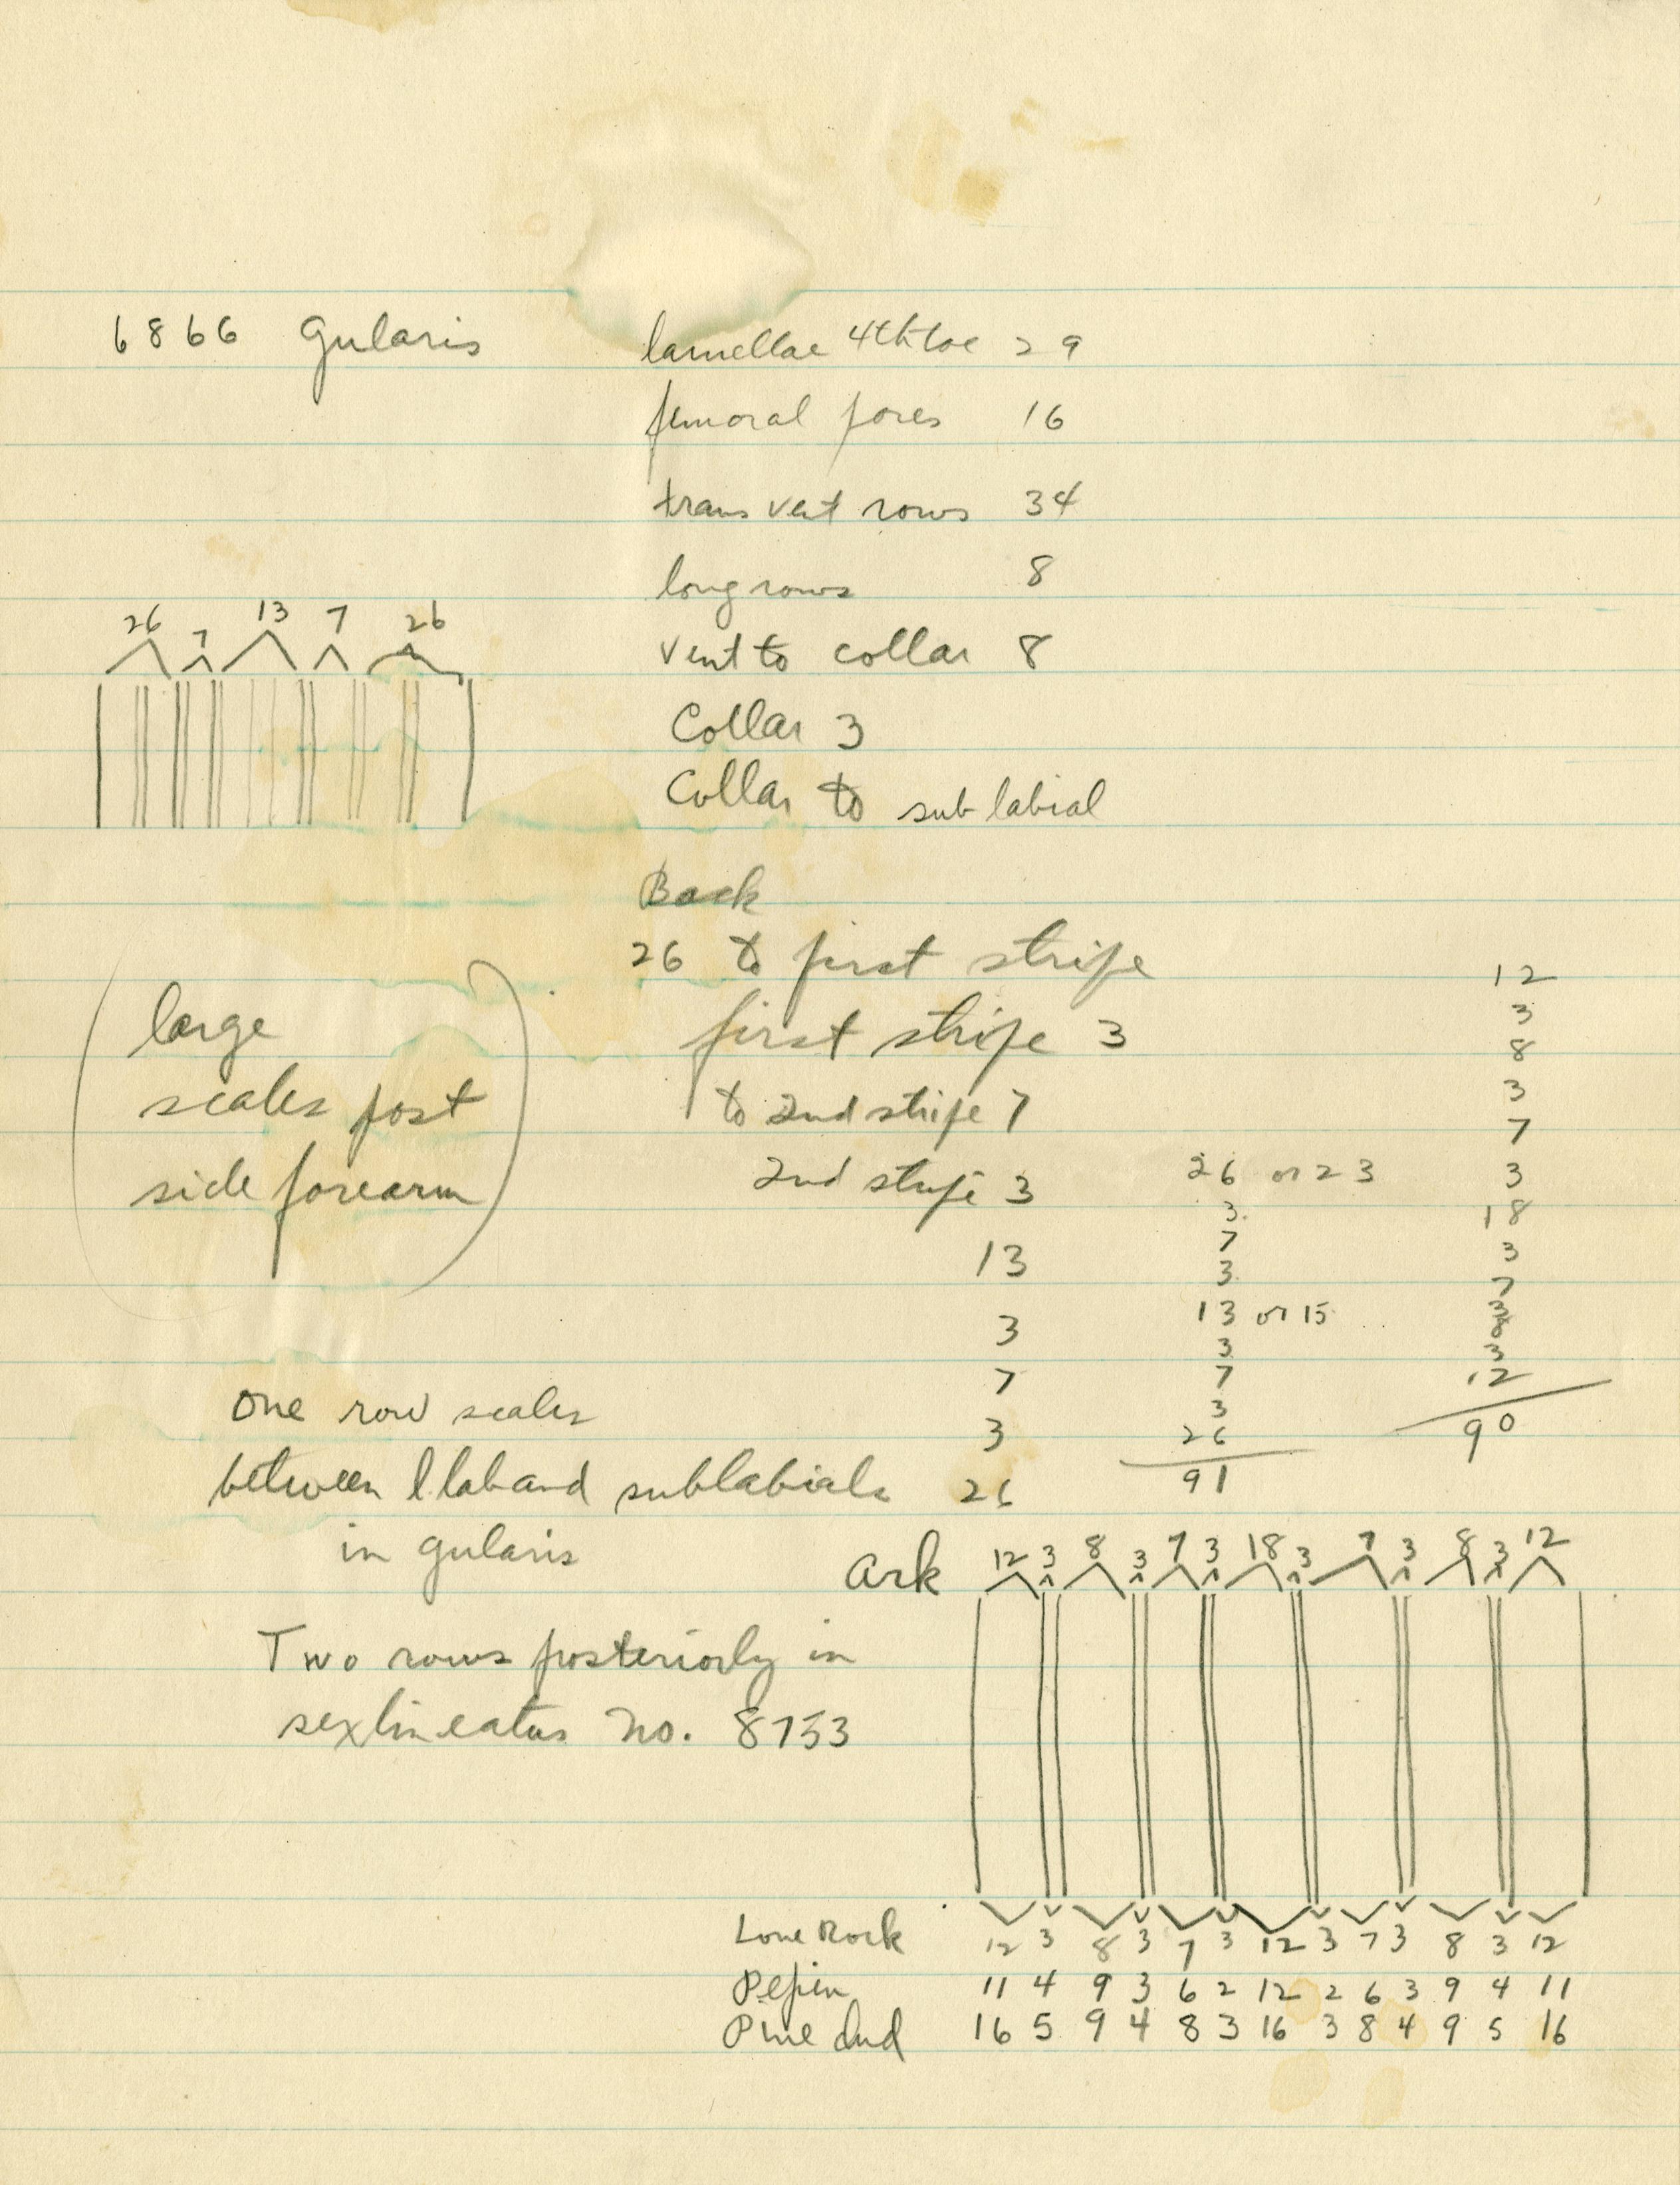 6866 Gularis
lamellae 4th toe 29
femoral pores 16
trans vent rows 34
long rows 8
vent to collar 8
Collar 3
Collar to sublabial
26 7 13 7 26
Back
26 to first stripe
first stripe 3
to 2nd stripe 7
2nd stripe 3
13
3
7
3
26
(large
scales post
side forearm)
26 or 23
3
7
3
13 or 15
3
7
3
26
91
12
3
8
3
7
3
18
3
7
3
8
3
12
90
One row scales
between l lab and sublabials
in gularis
Two rows posteriorly in
sexlineatus no. 8753
Ark 12 3 8 3 7 3 18 3 7 3 8 3 12
Lone Rock 12 3 8 3 7 3 12 3 7 3 8 3 12
Pepin 11 4 9 3 6 2 12 2 6 3 9 4 11
Pine 16 5 9 4 8 3 16 3 8 4 9 5 16